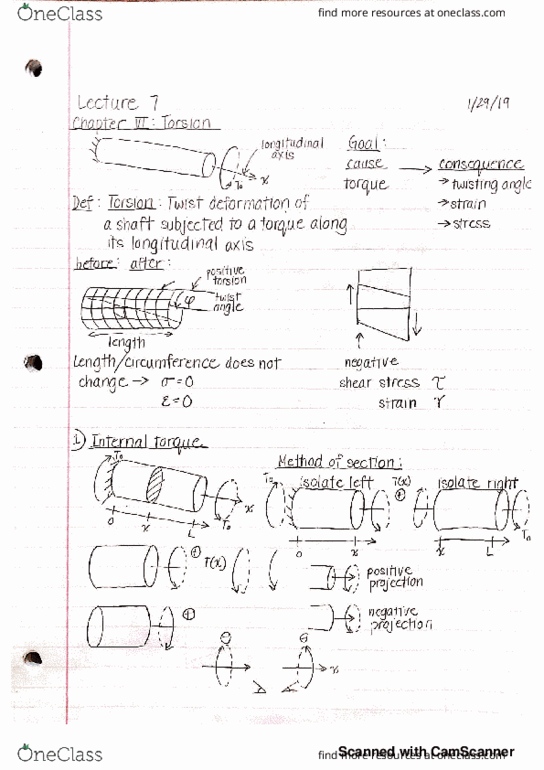 OneClass
find more resources at oneclass.com
Lecture 7
1/29/19
Chapter VII: Torsion
longitudinal axis
x
T₀
Goal:
cause → consequence
torque
→ twisting angle
→ strain
→ stress
Def: Torsion: Twist deformation of
a shaft subjected to a torque along
its longitudinal axis
before: after:
positive torsion
φ
twist angle
length
Length/circumference does not
change → σ=0
ε=0
negative
shear stress τ
strain γ
1) Internal torque
Method of section:
isolate left
isolate right
T₀
T(x)
0 x L
x
T₀
0 x
x L
T₀
T(x)
positive projection
negative projection
x
OneClass
find more resources at oneclass.com
Scanned with CamScanner